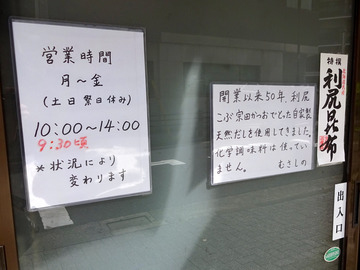 営業時間
月～金
(土日祭日休み)
10:00～14:00
9:30頃
*状況により
変わります
開業以来50年、利尻
こぶ宗田かつおでとった自家製
天然だしを使用してきました。
化学調味料は使ってい
ません。 むさしの
特撰
利尻昆布
出入口